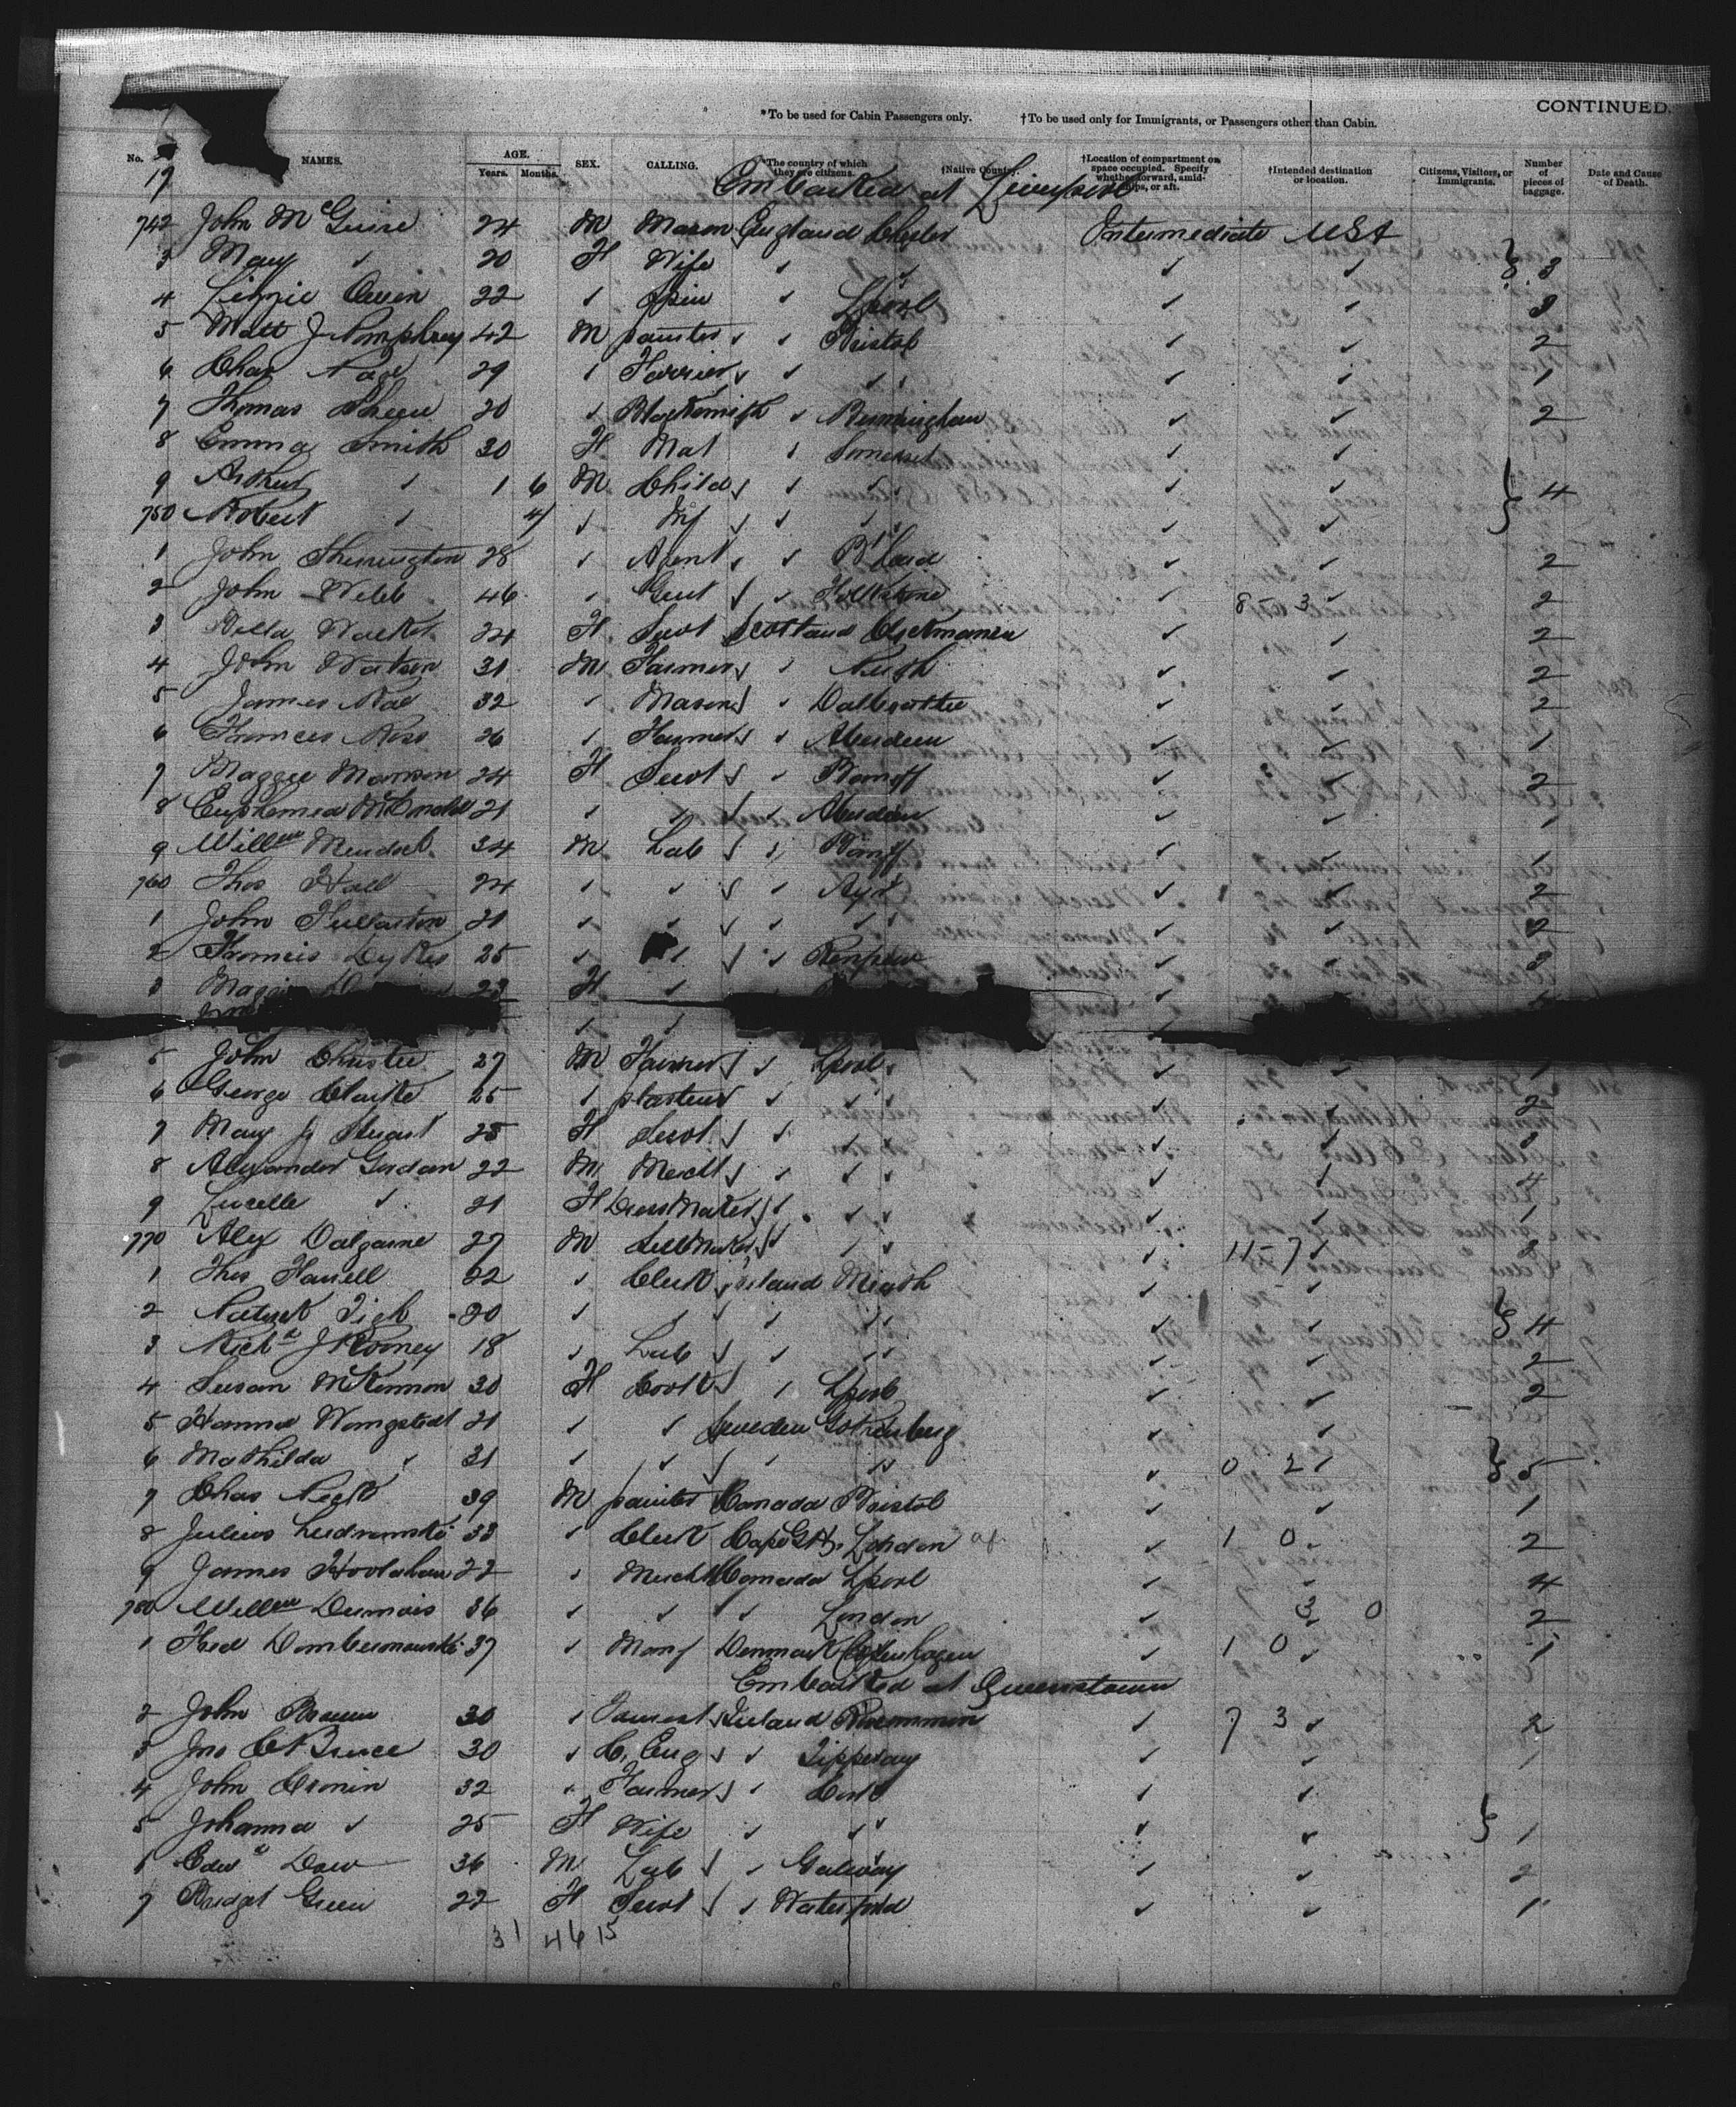 CONTINUED.
*To be used for Cabin Passengers only. †To be used only for Immigrants, or Passengers other than Cabin.
No. NAMES. AGE. Years. Months. SEX. CALLING. *The country of which they are citizens. †Native Country. †Location of compartment or space occupied. Specify whether forward, amidships, or aft. †Intended destination or location. Citizens, Visitors, or Immigrants. Number of pieces of baggage. Date and Cause of Death.
17 Embarked at Liverpool
742 John McGuire 24 M Mason England Chester Intermediate USA
3 Mary ✓ 20 F Wife ✓ ✓ ✓ ✓ } 3
4 Lizzie 22 ✓ Spin ✓ Lpool ✓ ✓ 3
5 Matt J Pomphrey 42 M painter ✓ ✓ Bristol ✓ ✓ 2
6 Chas 29 ✓ Farrier ✓ ✓ ✓ ✓ ✓ 1
7 Thomas 20 ✓ Blacksmith ✓ Birmingham ✓ ✓ 2
8 Emma Smith 30 F Mat ✓ Somerset ✓ ✓
9 Arthur ✓ 1 6 M Child ✓ ✓ ✓ ✓ ✓ } 4
750 Robert ✓ 4 ✓ Inf ✓ ✓ ✓ ✓ ✓
1 John Sherrington 28 ✓ Agent ✓ ✓ ✓ ✓ 2
2 John Webb 46 ✓ Gent ✓ ✓ Folkstone ✓ 8 5 3 ✓ 2
3 Bella 24 F Servt Scotland ✓ ✓ 2
4 John Watson 31 M Farmer ✓ ✓ ✓ ✓ 2
5 James Rae 32 ✓ Mason ✓ ✓ ✓ ✓ 2
6 Frances Ross 26 ✓ Farmer ✓ ✓ Aberdeen ✓ ✓ 1
7 Maggie Manson 24 F Servt ✓ ✓ Banff ✓ ✓ 2
8 Euphemia 21 ✓ ✓ ✓ ✓ Aberdeen ✓ ✓ 1
9 Willm Murdoch 34 M Lab ✓ ✓ Banff ✓ ✓ 1
760 Thos Hall 24 ✓ ✓ ✓ ✓ Ayr ✓ ✓ 2
1 John Fullarton 21 ✓ ✓ ✓ ✓ ✓ ✓ ✓ 2
2 Francis Dykes 25 ✓ ✓ ✓ ✓ Renfrew ✓ ✓ 3
3 Maggie 23 F ✓ ✓
✓ ✓
5 John Christie 27 M Farmer ✓ ✓ Lpool ✓ ✓ 1
6 George Clarke 25 ✓ plasterer ✓ ✓ ✓ ✓ 2
7 Mary J Stuart 25 F Servt ✓ ✓ ✓ ✓ ✓ ✓
8 Alexander Gordon 22 M Mercht ✓ ✓ ✓ ✓ ✓ ✓ 4
9 Lucelle ✓ 21 F DressMaker ✓ ✓ ✓ ✓ ✓ ✓ 1
770 Alex Dalgarne 27 M ✓ ✓ ✓ ✓ ✓ 11-7 ✓
1 Thos Farrell 22 ✓ Clerk Ireland Meath ✓ ✓
2 20 ✓ ✓ ✓ ✓ ✓ ✓ ✓ } 4
3 Richd J Rooney 18 ✓ Lab ✓ ✓ ✓ ✓ ✓ 2
4 Susan McKennon 30 F Cook ✓ ✓ Lpool ✓ ✓ 2
5 Hanna Wangstedt 21 ✓ ✓ Sweden Gothenburg ✓ ✓
6 Mathilda ✓ 31 ✓ ✓ ✓ ✓ ✓ ✓ 0 2 ✓ } 5
7 Chas 39 M painter Canada Bristol ✓ ✓ 1
8 Julius 33 ✓ Clerk Cape GH London ✓ 1 0 2
9 James Hoolahan 22 ✓ Mercht Canada Lpool ✓ ✓ 4
780 Willm Dumais 36 ✓ ✓ ✓ ✓ London ✓ 3 0 2
1 Fred 37 ✓ Manf Denmark Copenhagen ✓ 1 0 ✓ 1
Embarked at Queenstown
2 John 30 ✓ Tourist Ireland Roscommon ✓ 7 3 ✓ 2
3 Jno Bruce 30 ✓ C. Eng ✓ ✓ Tipperary ✓ ✓ 1
4 John Cronin 32 ✓ Farmer ✓ ✓ Cork ✓ ✓
5 Johanna ✓ 25 F Wife ✓ ✓ ✓ ✓ ✓ } 1
6 Edwd Daw 36 M Lab ✓ ✓ Galway ✓ ✓ 2
7 Bridget Green 22 F Servt ✓ ✓ Waterford ✓ ✓ 1
31 46 15